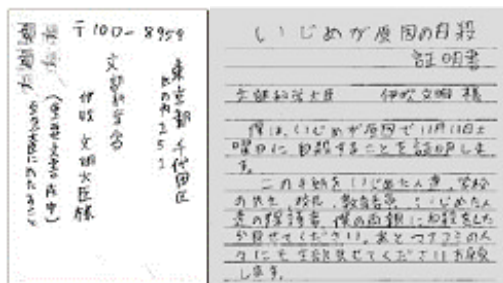 〒100-8959
東京都 千代田区
文部科学省
伊吹 文明大臣様
いじめが原因の自殺
証明書
文部科学大臣 伊吹文明 様
僕は、いじめが原因で11月11日土
曜日に自殺することを証明しま
す。
この手紙をいじめた人達、学校
の先生、校長、教育委、いじめた人
達の保護者、僕の両親に自殺をした
ら見せてください。あとマスコミの人
々にも全部見せてくださいお願
します。